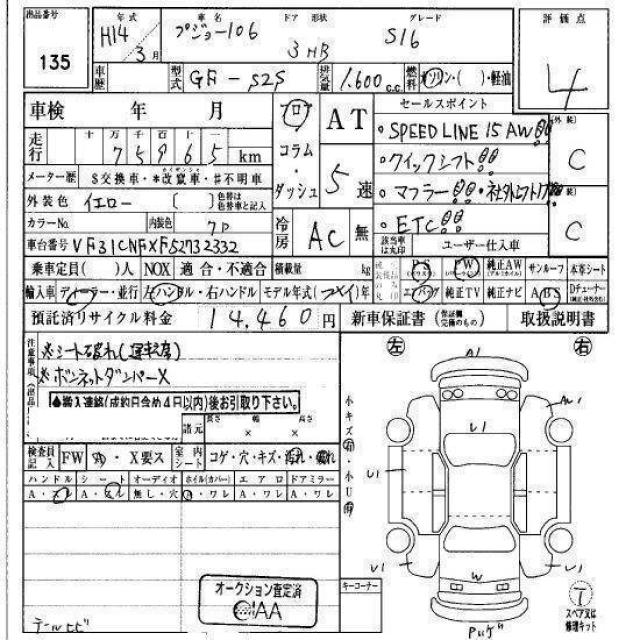 出品番号 135
年式 H14年3月
車名 プジョー106
ドア 形状 3HB
グレード S16
評価点 4
車歴
型式 GF-S2S
排気量 1.600 c.c.
燃料 ガソリン・( )・軽油
車検 年 月
走行 十万千百十一 75965 km
メーター歴 $交換車・*改竄車・#不明車
外装色 イエロー [ ] 色替は色替車と記入
カラーNo. 内装色
車台番号 VF31CNFXF52732332
フロア
コラム・
ダッシュ
AT
5速
冷房 AC 無
セールスポイント
。SPEED LINE 15AW!!
。クイックシフト!!
。マフラー!!・社外エアロ
。ETC!!
該当車は丸印
ユーザー仕入車
(外装) C
(内装) C
乗車定員( )人 NOX 適合・不適合 積載量 kg
PS PW 純正AW サンルーフ 本革シート
輸入車 ディーラー・並行 左ハンドル・右ハンドル モデル年式( )年
エアバッグ 純正TV 純正ナビ ABS Dチューナー
預託済リサイクル料金 14,460円
新車保証書 (保証欄完備のもの)
取扱説明書
注意事項
※シート破れ(運転席)
※ボンネットダンパーX
●搬入連絡(成約日含め4日以内)後お引取り下さい。
諸元 長さ × 幅 × 高さ
検査員記入 FW A・X要ス 室内シート コゲ・穴・キズ・汚れ・破れ
ハンドル シート オーディオ ホイル(カバー) エアロ ドアミラー
A・スレ A・スレ 無し・穴 A・ワレ A・ワレ A・ワレ
小キズ有・小U有
左 右
A1
AW1
U1
U1
U1
U1
W
Pいゲ
キーコーナー
オークション査定済
JAA
テールヒビ
T
スペア又は修理キット